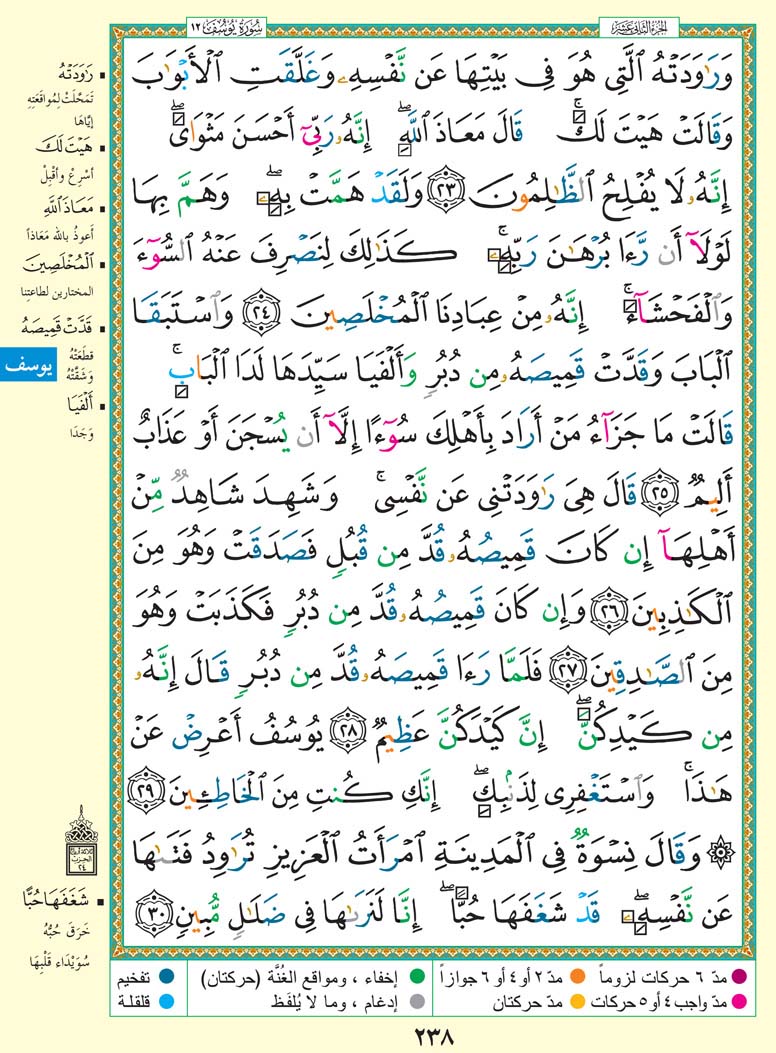 سُورَةُ يُوسُفَ ١٢
الجزء الثاني عشر
وَرَٰوَدَتْهُ ٱلَّتِى هُوَ فِى بَيْتِهَا عَن نَّفْسِهِۦ وَغَلَّقَتِ ٱلْأَبْوَٰبَ
وَقَالَتْ هَيْتَ لَكَ ۚ قَالَ مَعَاذَ ٱللَّهِ ۖ إِنَّهُۥ رَبِّىٓ أَحْسَنَ مَثْوَاىَ ۖ
إِنَّهُۥ لَا يُفْلِحُ ٱلظَّٰلِمُونَ ٢٣ وَلَقَدْ هَمَّتْ بِهِۦ ۖ وَهَمَّ بِهَا
لَوْلَآ أَن رَّءَا بُرْهَٰنَ رَبِّهِۦ ۚ كَذَٰلِكَ لِنَصْرِفَ عَنْهُ ٱلسُّوٓءَ
وَٱلْفَحْشَآءَ ۚ إِنَّهُۥ مِنْ عِبَادِنَا ٱلْمُخْلَصِينَ ٢٤ وَٱسْتَبَقَا
ٱلْبَابَ وَقَدَّتْ قَمِيصَهُۥ مِن دُبُرٍ وَأَلْفَيَا سَيِّدَهَا لَدَا ٱلْبَابِ ۚ
قَالَتْ مَا جَزَآءُ مَنْ أَرَادَ بِأَهْلِكَ سُوٓءًا إِلَّآ أَن يُسْجَنَ أَوْ عَذَابٌ
أَلِيمٌ ٢٥ قَالَ هِىَ رَٰوَدَتْنِى عَن نَّفْسِى ۚ وَشَهِدَ شَاهِدٌ مِّنْ
أَهْلِهَآ إِن كَانَ قَمِيصُهُۥ قُدَّ مِن قُبُلٍ فَصَدَقَتْ وَهُوَ مِنَ
ٱلْكَٰذِبِينَ ٢٦ وَإِن كَانَ قَمِيصُهُۥ قُدَّ مِن دُبُرٍ فَكَذَبَتْ وَهُوَ
مِنَ ٱلصَّٰدِقِينَ ٢٧ فَلَمَّا رَءَا قَمِيصَهُۥ قُدَّ مِن دُبُرٍ قَالَ إِنَّهُۥ
مِن كَيْدِكُنَّ ۖ إِنَّ كَيْدَكُنَّ عَظِيمٌ ٢٨ يُوسُفُ أَعْرِضْ عَنْ
هَٰذَا ۚ وَٱسْتَغْفِرِى لِذَنۢبِكِ ۖ إِنَّكِ كُنتِ مِنَ ٱلْخَاطِـِٔينَ ٢٩
۞ وَقَالَ نِسْوَةٌ فِى ٱلْمَدِينَةِ ٱمْرَأَتُ ٱلْعَزِيزِ تُرَٰوِدُ فَتَىٰهَا
عَن نَّفْسِهِۦ ۖ قَدْ شَغَفَهَا حُبًّا ۖ إِنَّا لَنَرَىٰهَا فِى ضَلَٰلٍ مُّبِينٍ ٣٠
▪ رَٰوَدَتْهُ
تَمَحَّلَتْ لِمُواقَعَتِهِ
إيَّاهَا
▪ هَيْتَ لَكَ
أسْرِعْ وأقْبِلْ
▪ مَعَاذَ ٱللَّهِ
أعوذُ بالله مَعَاذاً
▪ ٱلْمُخْلَصِينَ
المختارين لطاعتِنا
▪ قَدَّتْ قَمِيصَهُ
قطَعَتْهُ
وَشَقَّتْهُ
▪ أَلْفَيَا
وَجَدَا
يوسف
ثلاثة أرباع
الحزب
٢٤
▪ شَغَفَهَا حُبًّا
خَرَقَ حُبُّهُ
سُوَيْدَاءَ قَلْبِهَا
مدّ ٦ حركات لزوماً
مدّ ٢ أو ٤ أو ٦ جوازاً
إخفاء ، ومواقع الغُنَّة (حركتان)
تفخيم
مدّ واجب ٤ أو ٥ حركات
مدّ حركتان
إدغام ، وما لا يُلفَظ
قلقلة
٢٣٨